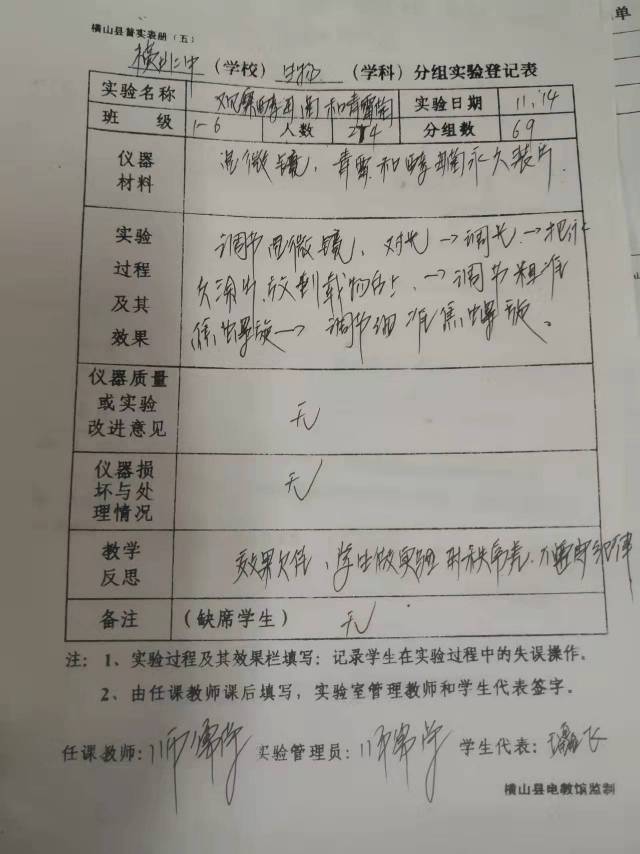 横山县普实表册(五)
横山二中(学校)生物(学科)分组实验登记表
实验名称 观察酵母菌和青霉菌 实验日期 11.14
班 级 1-6 人数 274 分组数 69
仪器材料 显微镜,青霉和酵母菌永久装片.
实验过程及其效果 调节显微镜,对光→调光→把永
久涂片放到载物台上,→调节粗准
焦螺旋→调节细准焦螺旋。
仪器质量或实验改进意见 无
仪器损坏与处理情况 无
教学反思 效果欠佳,学生做实验时秩序差.不遵守纪律
备注 (缺席学生) 无
注: 1、实验过程及其效果栏填写:记录学生在实验过程中的失误操作。
2、由任课教师课后填写,实验室管理教师和学生代表签字。
任课教师: 实验管理员: 学生代表: 飞
横山县电教馆监制
单